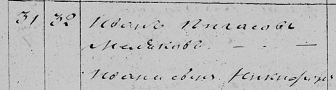 31 32 Иванъ Пигасовъ
Маляковъ - -
Иванъ сынъ Никифоръ